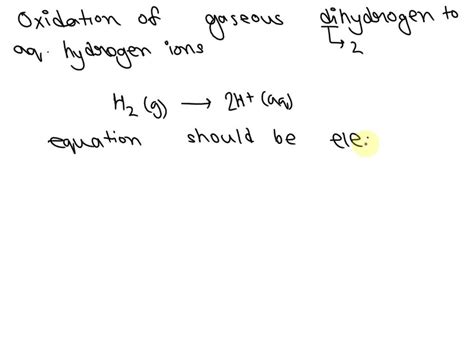 Oxidation of gaseous dihydrogen to
↳2
aq. hydrogen ions
H₂ (g) ⟶ 2H+ (aq)
equation should be ele